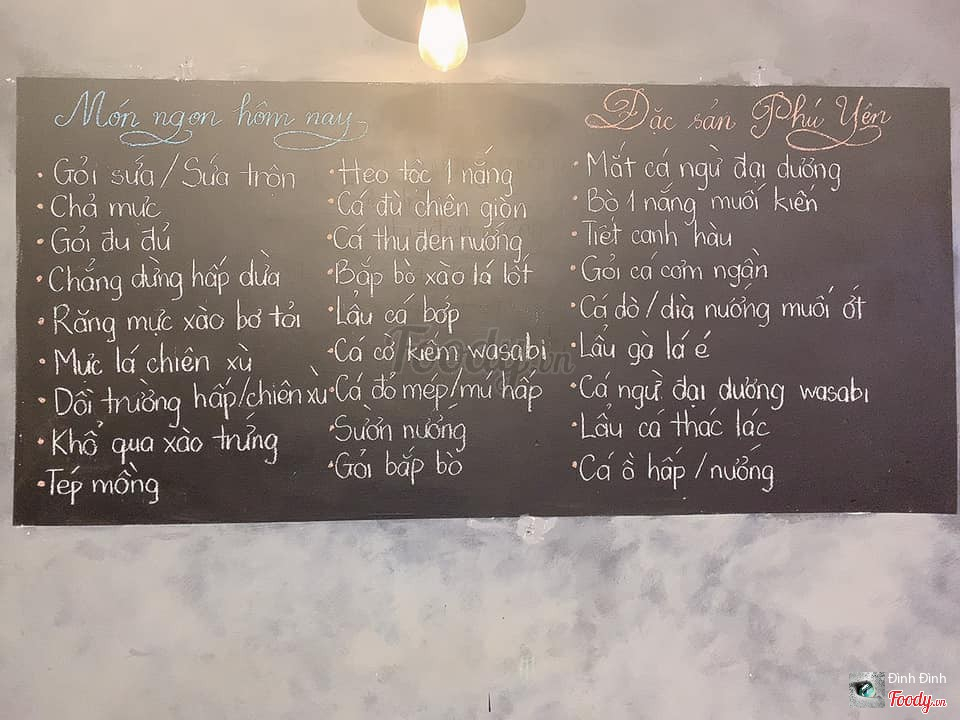 Món ngon hôm nay
• Gỏi sứa / Sứa trộn
• Chả mực
• Gỏi đu đủ
• Chẳng dừng hấp dừa
• Răng mực xào bơ tỏi
• Mực lá chiên xù
• Dồi trường hấp/chiên xù
• Khổ qua xào trứng
• Tép mồng
• Heo tộc 1 nắng
• Cá đù chiên giòn
• Cá thu đen nướng
• Bắp bò xào lá lốt
• Lẩu cá bớp
• Cá cờ kiếm wasabi
• Cá đỏ mép/mú hấp
• Sườn nướng
• Gỏi bắp bò
Đặc sản Phú Yên
• Mắt cá ngừ đại dương
• Bò 1 nắng muối kiến
• Tiết canh hàu
• Gỏi cá cơm ngần
• Cá dò / dìa nướng muối ớt
• Lẩu gà lá é
• Cá ngừ đại dương wasabi
• Lẩu cá thác lác
• Cá ồ hấp / nướng
Foody.vn
Đinh Đinh
Foody.vn